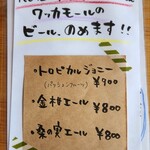 ワッカモールの
ビール、のめます!!
・トロピカルジョニー
(パッションフルーツ)
¥900
・金村エール ¥800
・桑の実エール ¥800